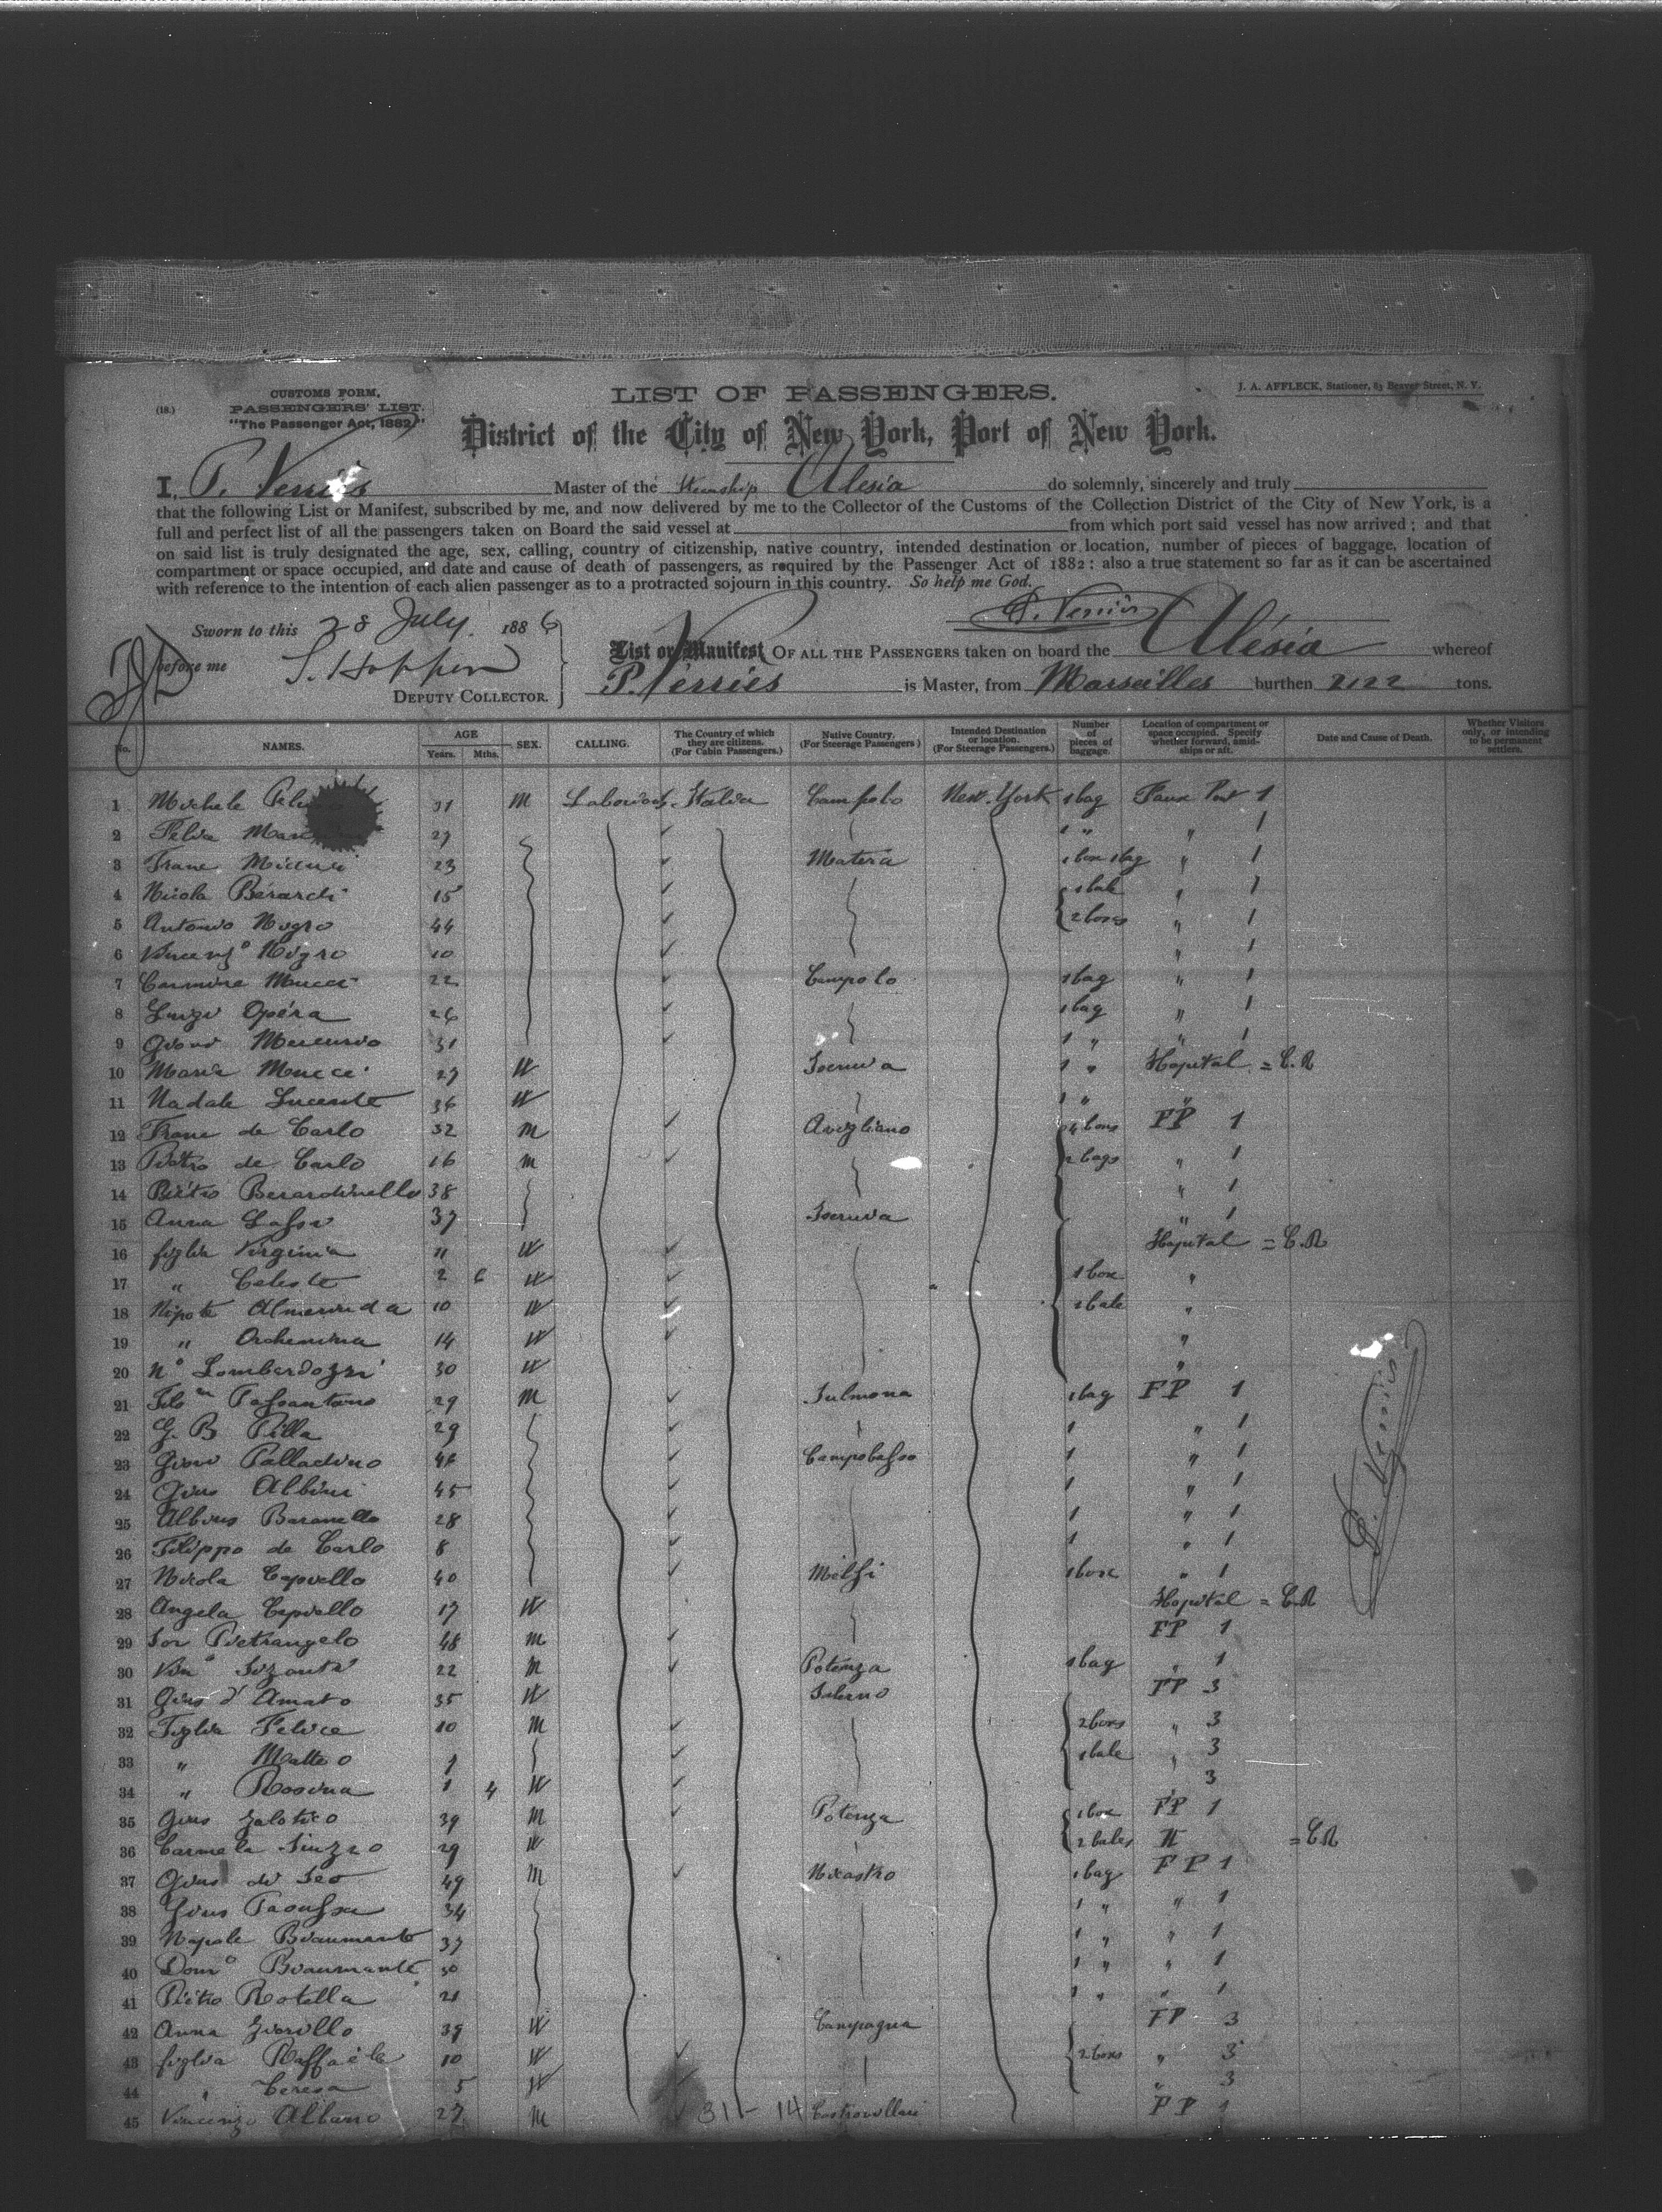 (18.)
CUSTOMS FORM,
PASSENGERS' LIST.
"The Passenger Act, 1882."
LIST OF PASSENGERS.
J. A. AFFLECK, Stationer, 63 Beaver Street, N. Y.
District of the City of New York, Port of New York.
I, P. Verriès Master of the Steamship Alesia do solemnly, sincerely and truly
that the following List or Manifest, subscribed by me, and now delivered by me to the Collector of the Customs of the Collection District of the City of New York, is a
full and perfect list of all the passengers taken on Board the said vessel at from which port said vessel has now arrived; and that
on said list is truly designated the age, sex, calling, country of citizenship, native country, intended destination or location, number of pieces of baggage, location of
compartment or space occupied, and date and cause of death of passengers, as required by the Passenger Act of 1882: also a true statement so far as it can be ascertained
with reference to the intention of each alien passenger as to a protracted sojourn in this country. So help me God.
P. Verriès
Sworn to this 28 July 1886
before me S. Hoppen
DEPUTY COLLECTOR.
List or Manifest OF ALL THE PASSENGERS taken on board the Alésia whereof
P. Verriès is Master, from Marseilles burthen 2122 tons.
No. NAMES. AGE Years. Mths. SEX. CALLING. The Country of which they are citizens. (For Cabin Passengers.) Native Country. (For Steerage Passengers) Intended Destination or location. (For Steerage Passengers.) Number of pieces of baggage. Location of compartment or space occupied. Specify whether forward, amidships or aft. Date and Cause of Death. Whether Visitors only, or intending to be permanent settlers.
1 Michele 31 M Italia Campolo New-York 1 bag Faux Pont 1
2 Felice 27 1 " " 1
3 Franc Miccuci 23 Matera 1 box 1 bag " 1
4 Nicola Berardi 15 1 bale " 1
5 Antonio Nigro 44 2 boxes " 1
6 Vincenzo Nigro 10 " 1
7 Carmine Mucci 22 Campolo 1 bag " 1
8 Luigi Opéra 26 1 bag " 1
9 Giovi Mercurio 31 1 " " 1
10 Maria Mucci 27 W 1 " Hopital = C.R
11 Nadale Lucente 36 W 1 " "
12 Franc de Carlo 32 M Avigliano 4 boxes FP 1
13 Pietro de Carlo 16 M 2 bags " 1
14 Pietro Berardinello 38 " 1
15 Anna 37 " 1
16 figlia Virginia 11 W Hopital = C.R
17 " Celeste 2 6 W 1 box "
18 Nipote Almerinda 10 W 1 bale "
19 " 14 W "
20 Nª Lombardozzi 30 W "
21 Passantano 29 M Sulmona 1 bag FP 1
22 G. B Pilla 29 1 " 1
23 Giovi Palladino 46 Campobasso 1 " 1
24 Gius Albini 45 1 " 1
25 Albino Baranello 28 1 " 1
26 Filippo de Carlo 8 1 " 1
27 Nicola Capuello 40 Melfi 1 box " 1
28 Angela Capuello 17 W Hopital = C.R
29 Pietrangelo 48 M FP 1
30 22 M Potenza 1 bag " 1
31 Gius d'Amato 35 W Salerno FP 3
32 Figlia Felice 10 M 2 boxes " 3
33 " Matteo 7 1 bale " 3
34 " Rosina 1 4 W 3
35 Gius 39 M Potenza 1 box FP 1
36 Carmela 29 W 2 bales H = C.R
37 Gius di Leo 49 M Nicastro 1 bag FP 1
38 Gius 34 1 " " 1
39 Napole Buaumante 37 1 " " 1
40 Domº Buaumante 30 1 " " 1
41 Pietro Rotella 21 1 " " 1
42 Anna Fiorillo 39 W Campagna FP 3
43 figlia Raffaele 10 W 2 boxes " 3
44 " Teresa 5 W " 3
45 Vincenzo Albano 27 M 311 - 14 Castrovillari FP 1
P. Verriès